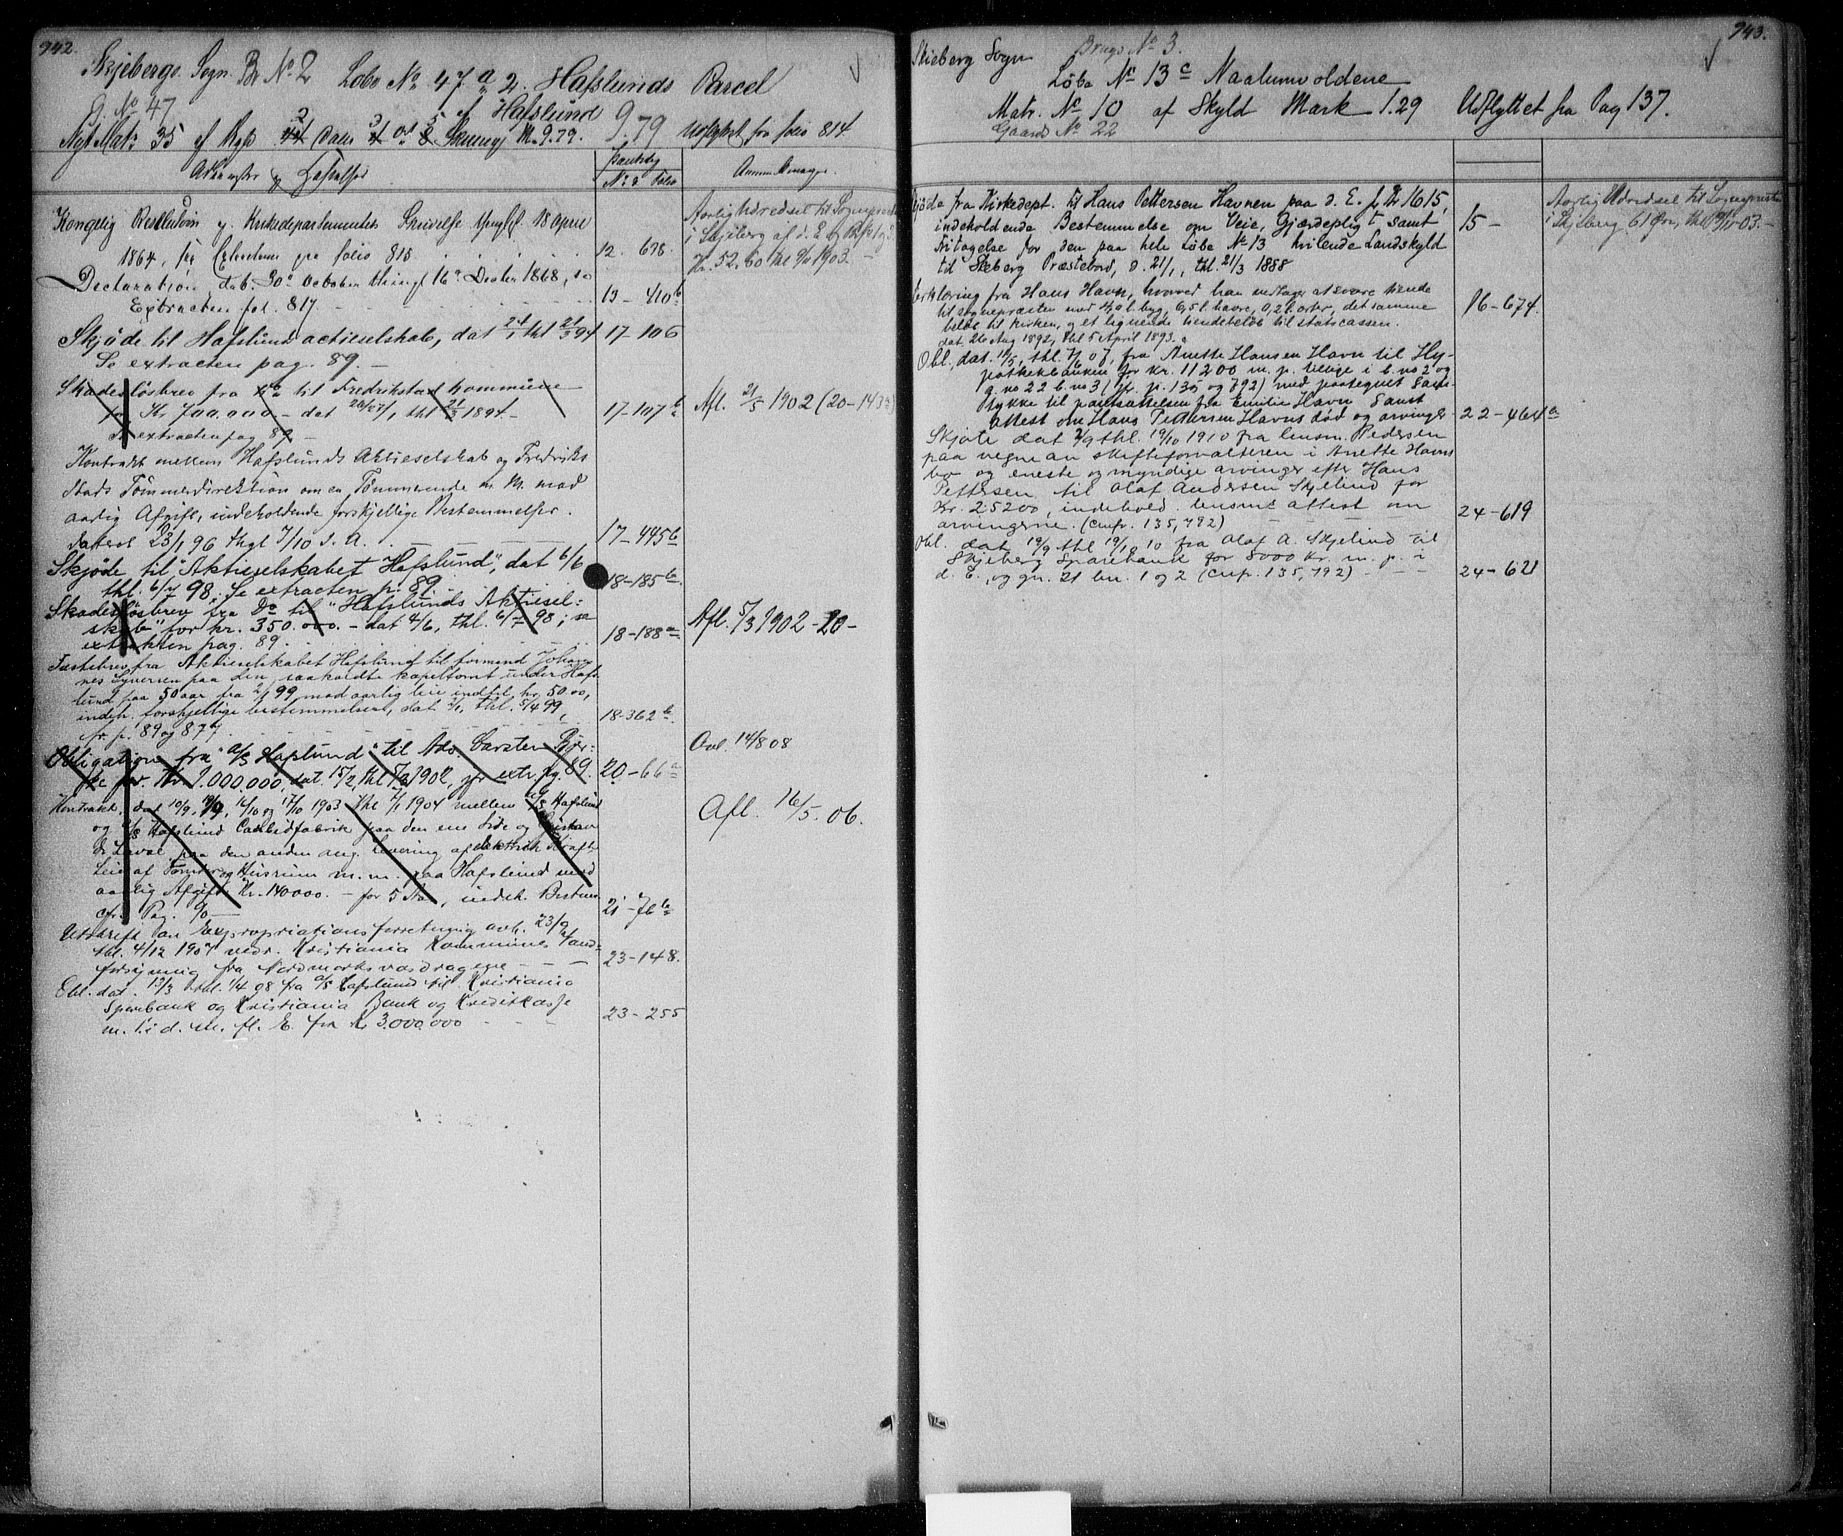 942.
Skjebergs Sogn. Br. No 2 Løbe No 47 a 2. Hafslunds Parcel
G. No 47 af Hafslund
Nyt Mat: 35 af Skyld M. 9.79. 9.79 Udflyttet fra folio 814
Adkomster og Hæftelser
Pantebog
No & Folio
Anmærkninger.
Kongelig Resolution Kirkedepartementets Skrivelse 18 April
1864, folio 815 12. 698.
Aarlig Udredsel til Sognepræsten
i Skjeberg af d. E.
Kr. 52,60 thl 1903.
Declaration, dat. 30 October thingl 16 Decbr 1868, se
Extracten fol. 817. 13 - 410 b
Skjøde til Hafslund actieselskab, dat 24/1 thl 21/3 94 17-106
Se extracten pag. 89. -
Skadesløsbrev fra Do til Fredrikstad Kommune
for Kr 700,000 - dat thl 21/3 1894 - 17-107 b Afl. 21/5 1902 (20-143)
Se extracten pag. 89 -
Kontrakt mellem Hafslunds Aktieselskab og Fredriks
stads Tømmerdirektion om en Tømmerrende m. M. mod
aarlig Afgift, indeholdende forskjellige Bestemmelser.
dateret 23/1 96 thgl 7/10 s. A. 17-445 b
Skjøde til "Aktieselskabet Hafslund", dat 6/6
thl. 6/7 98. Se extracten p. 89. 18-185 b
Skadesløsbrev fra Do til "Hafslunds Aktiesel-
skab" for kr. 350.000. - dat 4/6, thl. 6/7 98; se
extrakten pag. 89. 18-188 a Afl. 5/3 1902 - 20 -
Fæstebrev fra Aktieselskabet Hafslund til formand Johan-
nes Syversen paa den saakaldte kapeltomt under Hafs-
lund paa 50 aar fra 2/1 99 mod aarlig leie indtil kr. 50.00,
indeh. forskjellige bestemmelser, dat thl. 5/4 99, 18-362 b
fr. p. 89 og 877.
Obligation fra A/S Hafslund til Adv. Carsten Bjer-
ke for Kr. 1.000.000, dat 15/2, thl 5/3 1902, jfr extr. pg. 89. 20-66 a Avl. 14/8 08
Kontrakt, dat 10/9, 16/10 og 17/10 1903 thl 7/1 1904 mellem A/S Hafslund
og A/S Hafslund Carbidfabrik paa den ene Side og Gustav
de Laval paa den anden ang. levering af elektrisk Kraft,
Leie af Tomter og Husrum m.m. paa Hafslund mod
aarlig Afgift Kr. 140000. - for 5 Aar, indeh. Bestem.
cfr. Pag. 90 21-76 b
Afl. 16/5. 06.
Utskrift av Expropriationsforretning avh. 23/9
thl. 4/12 1907 vedr. Kristiania Kommunes Vand-
forsyning fra Nordmarksvasdragene - - - 23-148.
Obl. dat. 13/3 thl. 1/4 08 fra A/S Hafslund til Kristiania
Sparebank og Kristiania Bank og Kreditkasse
m. 1. i d. m. fl. E. for kr 3.000.000 - - - 23-255
943.
Skieberg Sogn Brugs No 3.
Løbe No 13 c Naalumvoldene
Matr. No 10 af Skyld Mark 1.29 Udflyttet fra Pag 137.
Gaards No 22
Skjøde fra Kirkedept. til Hans Pettersen Havnen paa d. E. f. kr 1615,
indeholdende Bestemmelse om Veie, Gjærdepligt samt 15 -
Fritagelse for den paa hele Løbe No 13 hvilende Landskyld
til Skeberg Præstebord, d. 21/1, thl. 21/3 1888
Aarlig Udredsel til Sognepræsten
i Skjeberg 61 Øre, thl 03. -
Erklæring fra Hans Havn, hvorved han vedtager at svare tiende
til sognepræsten med 4,0 l. byg, 0,5 l. havre, 0,2 l. erter, det samme 16-674.
beløb til kirken, og et lignende tiendebeløb til statscassen.
dat. 26 Aug 1892, thl 5 April 1893.
Obl. dat. 14/5, thl. 7/6 07, fra Anette Hansen Havn til Hy-
pothekbanken for kr. 11200 m. p. tillige i b. no 2 og
g. no 22 b. no 3 (jfr. p. 135 og 792) med paategnet Sam-
tykke til pantsættelsen fra Emilie Havn samt
attest om Hans Pettersen Havns død og arvinger 22-464 a
Skjøte dat 2/9 thl. 19/10 1910 fra lensm. Pedersen
paa vegne av skifteforvalteren i Anette Havns
bo og eneste og myndige arvinger efter Hans
Pettersen til Olaf Andersen Skjelind for
Kr. 25200, indehold. lensm. attest om 24-619
arvingerne. (cnfr. 135, 792)
Obl. dat 19/9 thl 19/10 10 fra Olaf A. Skjelind til
Skjeberg Sparebank for 8000 kr. m. p. i
d. E. og gn. 21 bn. 1 og 2 (cnfr. 135, 792) - - - 24-621